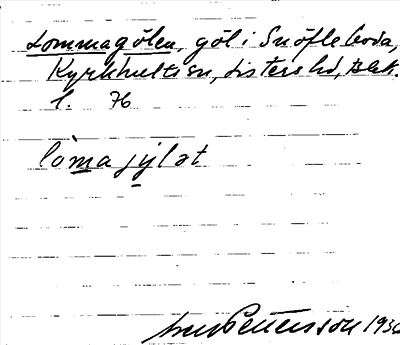 Lommagölen, göl i Snöfleboda,
Kyrkhults sn, Listers hd, Blek.
l. 76
lòmajylət
Pettersson 193